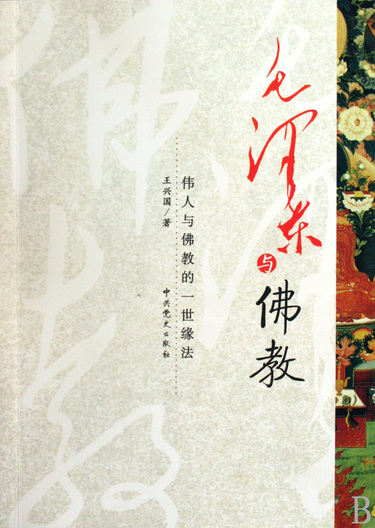 毛泽东
与
佛教
伟人与佛教的一世缘法
王兴国/著
中共党史出版社
B